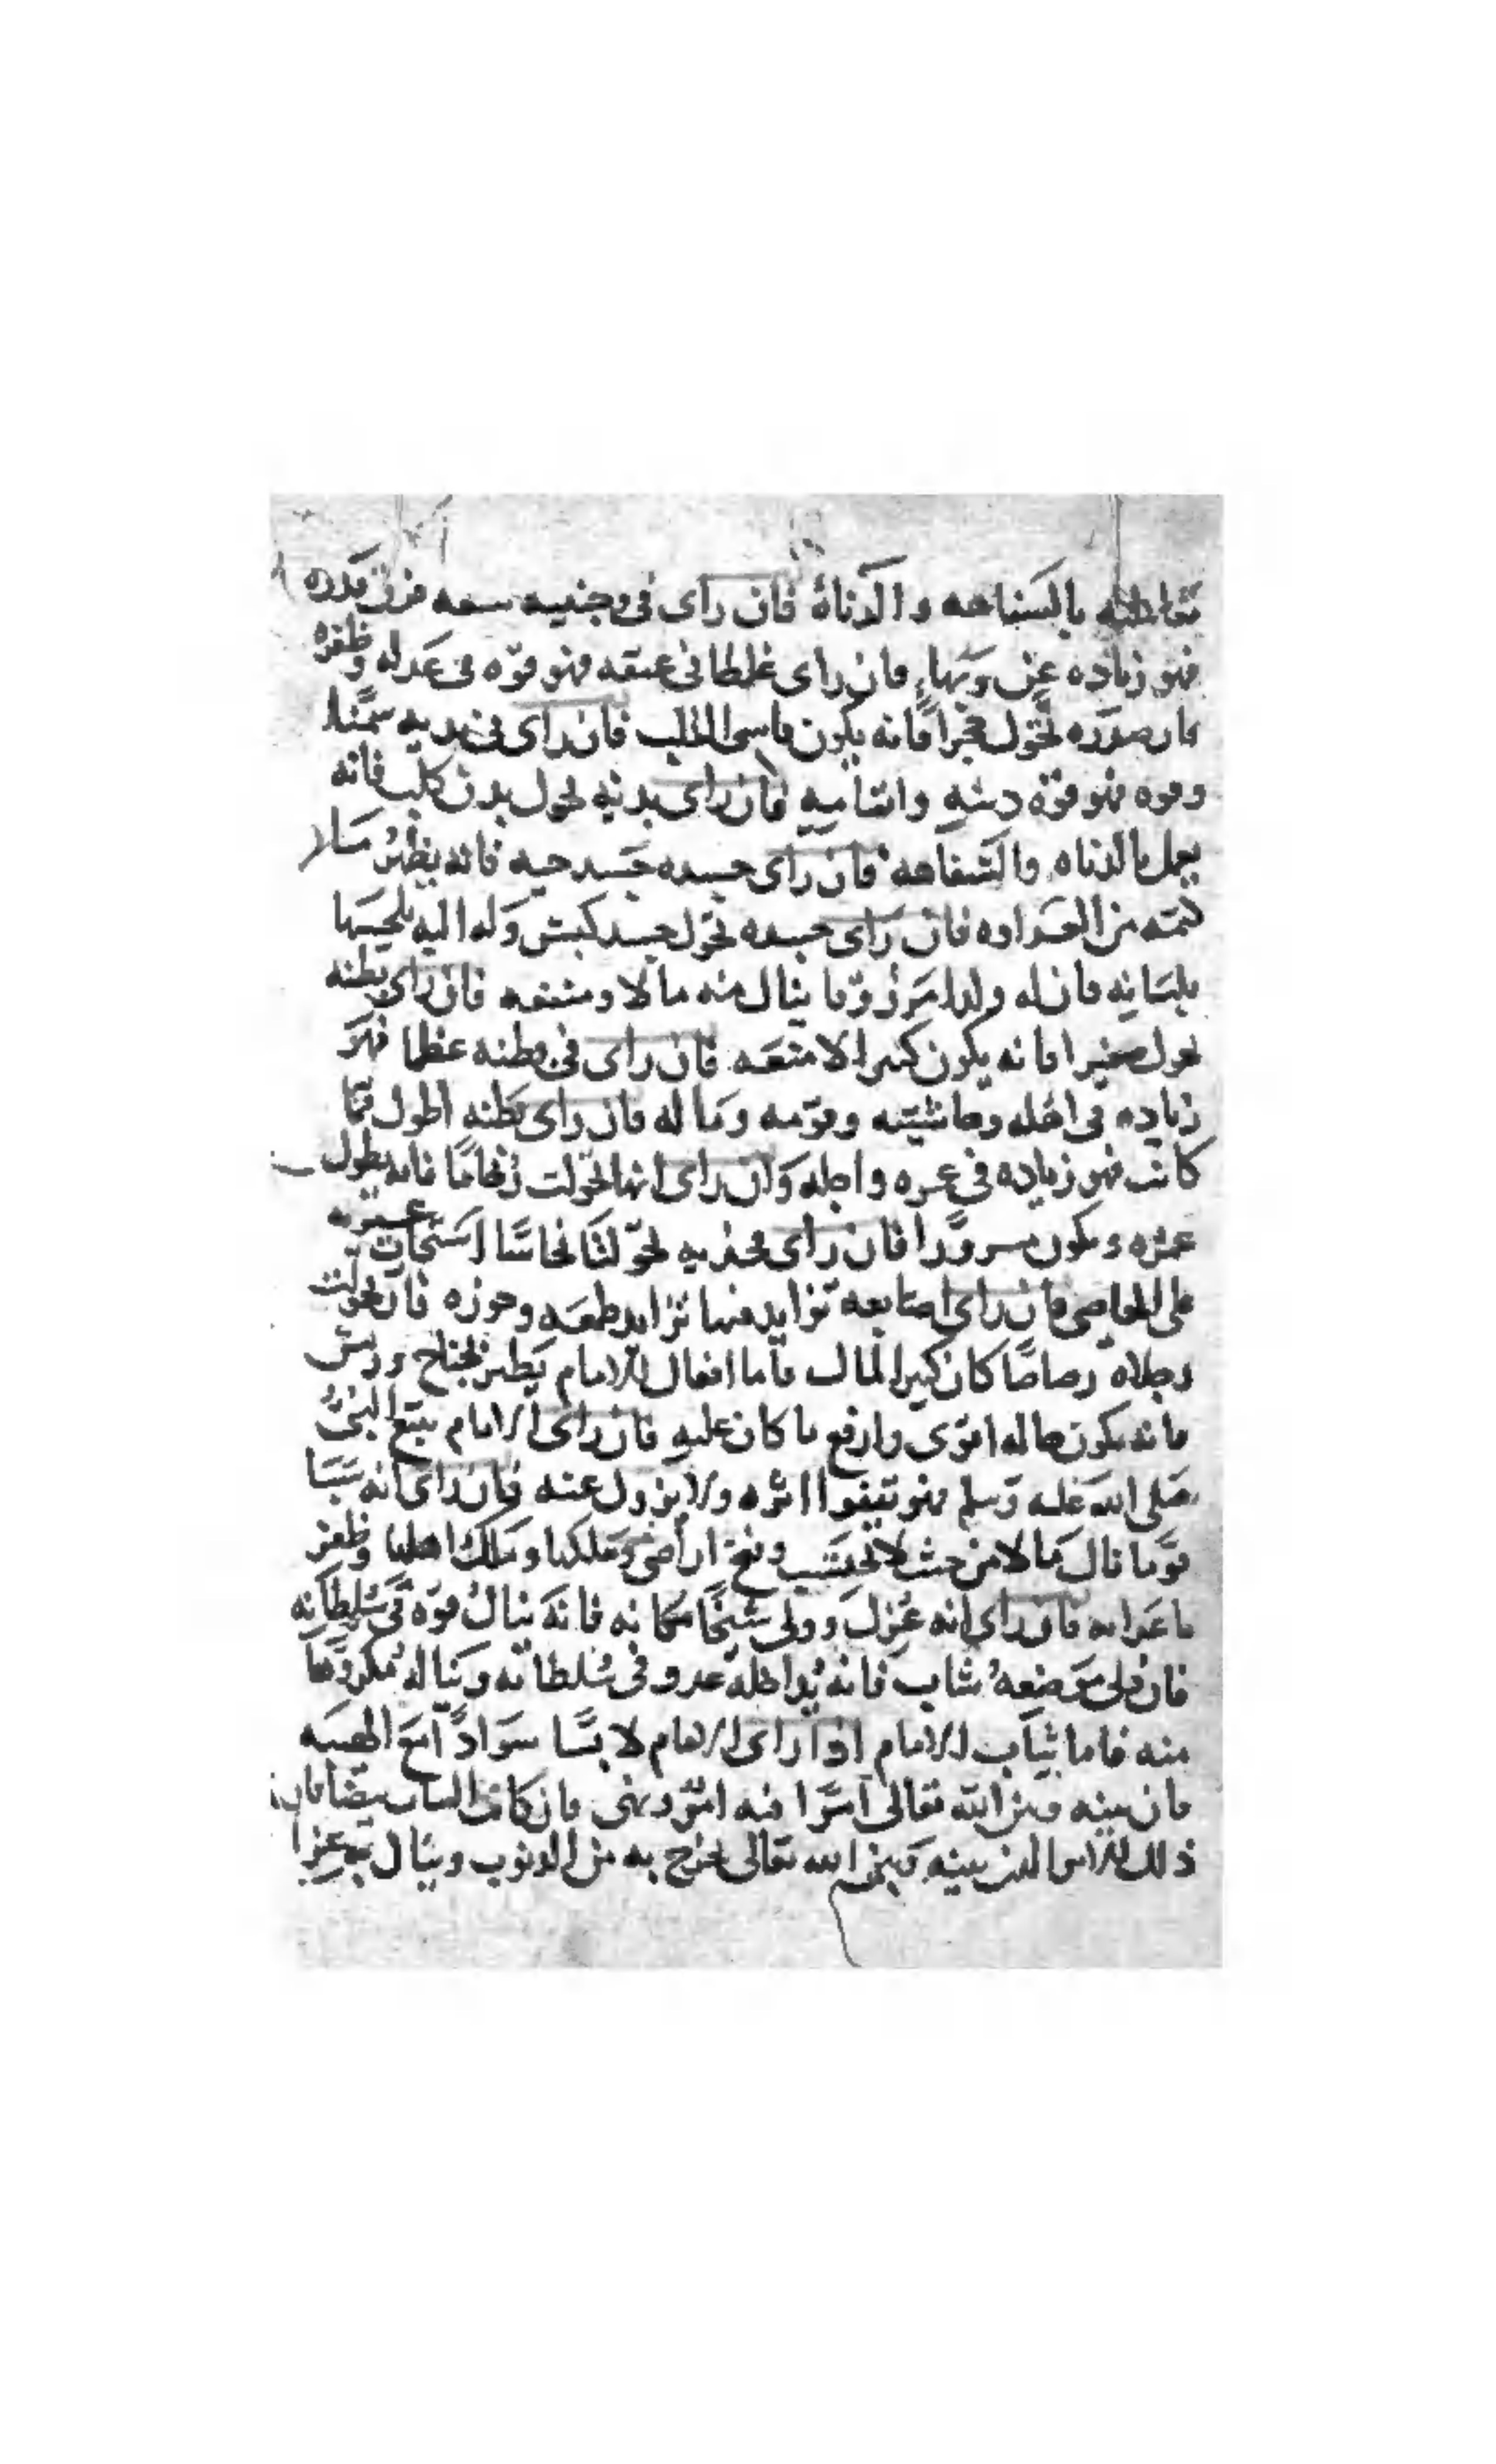 بالسفاهه والدناة فان راى في وجنتيه سعه فوق قدره
فهو زياده عز وبهاء فان راى غلظا في عنقه فهو قوه في عدله وظفره
فان صدره تحول حجرا فانه يكون قاسي القلب فان راى في ثدييه سمنا
وقوه فهو قوة دينه فان راى بدنه تحول بدن كلب فانه
يعمل بالدناه والسفاهه فان راى جسده جسد حيه فانه يظهر ما
كتمه من العداوه فان راى جسده تحول جسد كبش وله اليه يلحسها
بلسانه فان له ولدا مرزوقا ينال منه مالا ومنفعه فان راى بطنه
تحول صغيرا فانه يكون كثير الامتعه فان راى في بطنه عظما فهو
زياده في اهله وحاشيته وقومه وماله فان راى بطنه اطول مما
كانت فهو زياده في عمره واجله وان راى انها تحولت رخاما فانه يطول
عمره ويكون مسرورا فان راى فخذيه تحولتا نحاسا عشيرته
على المعاصي فان راى اصابعه تزايد منها تزايد طمعه وجوره فان تحولت
رجلاه رصاصا كان كثير المال فاما افعال الامام يطير بجناح وريش
فانه يكون حاله اقوى وارفع ما كان عليه فان راى الامام يتبع النبي
صلى الله عليه وسلم فهو يقفوا اثره ولا يزول عنه فان راى انه سبا
قوما نال مالا من حيث لا يحتسب وفتح اراضي وملكها وملك اهلها وظفر
باعدايه فان راى انه عزل وولى شيخا مكانه فانه ينال قوه في سلطانه
فان ولى موضعه شاب فانه يداخله عدو في سلطانه ويناله مكروها
منه فاما ثياب الامام اذا راى الامام لابسا سوادا مع الهيبه
فان بينه وبين الله تعالى اسرا فيه فان كانت الثياب بيضا فان
ذلك الامر الذي بينه وبين الله تعالى يخرج به من الذنوب وينال به عزا